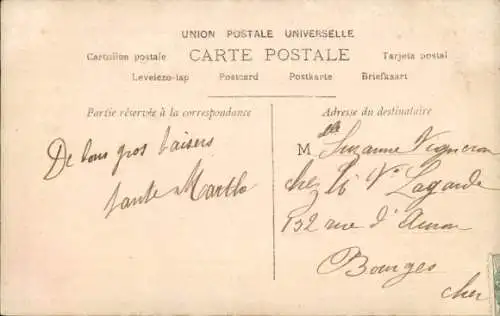 UNION POSTALE UNIVERSELLE
Cartolina postale CARTE POSTALE Tarjeta postal
Levelezo-lap Postcard Postkarte Briefkaart
Partie réservée à la correspondance
De bons gros baisers
tante Marthe
Adresse du destinataire
M elle Suzanne Vigneron
chez Lagarde
132 rue d'Auron
Bourges
Cher